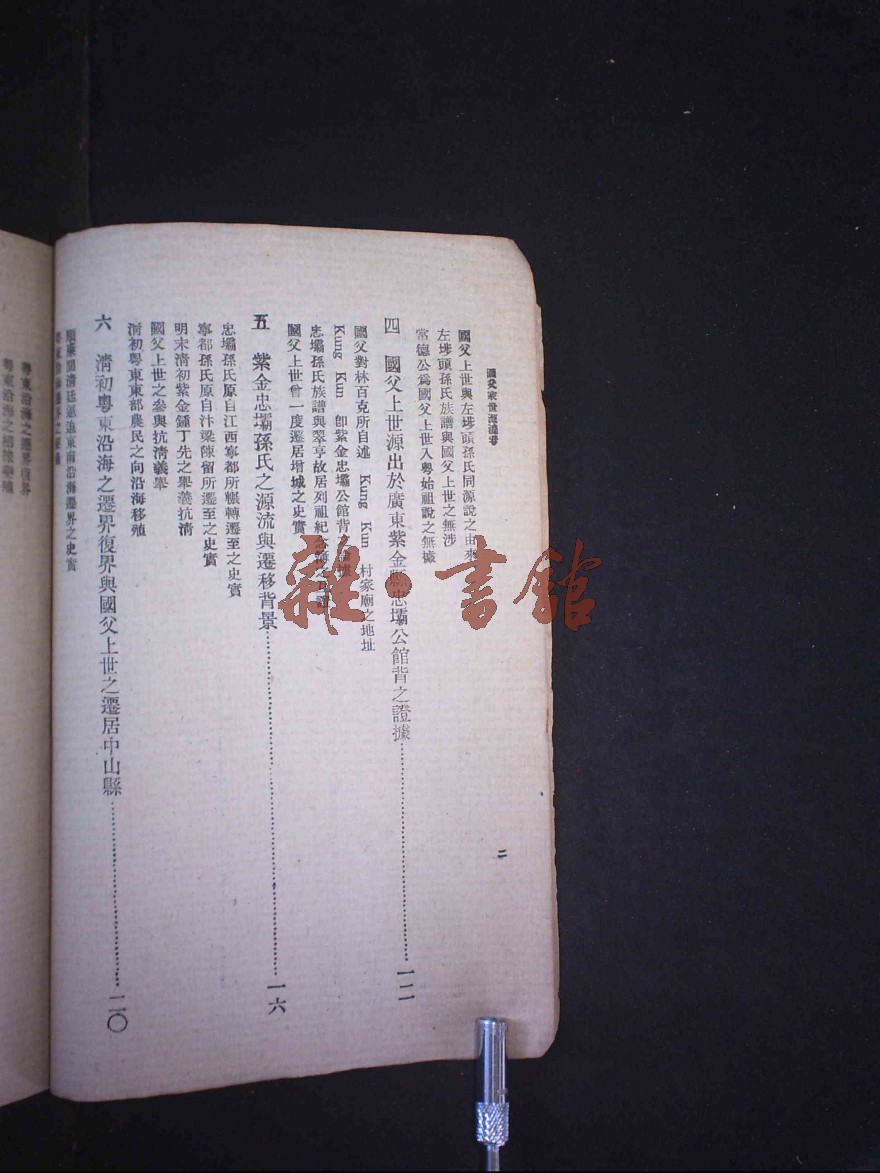 國父家世源流考
二
國父上世與左埗頭孫氏同源說之由來
左埗頭孫氏族譜與國父上世之無涉
常德公爲國父上世入粵始祖說之無據
四 國父上世源出於廣東紫金縣忠壩公館背之證據 一二
國父對林百克所自述 Kung Kun 村家廟之地址
Kung Kun 卽紫金忠壩公館背之
忠壩孫氏族譜與翠亨故居列祖紀念
國父上世曾一度遷居增城之史實
五 紫金忠壩孫氏之源流與遷移背景 一六
忠壩孫氏原自江西寧都所輾轉遷至之史實
寧都孫氏原自汴梁陳留所遷至之史實
明末淸初紫金鍾丁先之舉義抗淸
國父上世之參與抗淸義舉
淸初粵東東部農民之向沿海移殖
六 淸初粵東沿海之遷界復界與國父上世之遷居中山縣 二〇
順康間淸廷逼迫東南沿海遷界之史實
粵東沿海之遷界復界
雜·書館